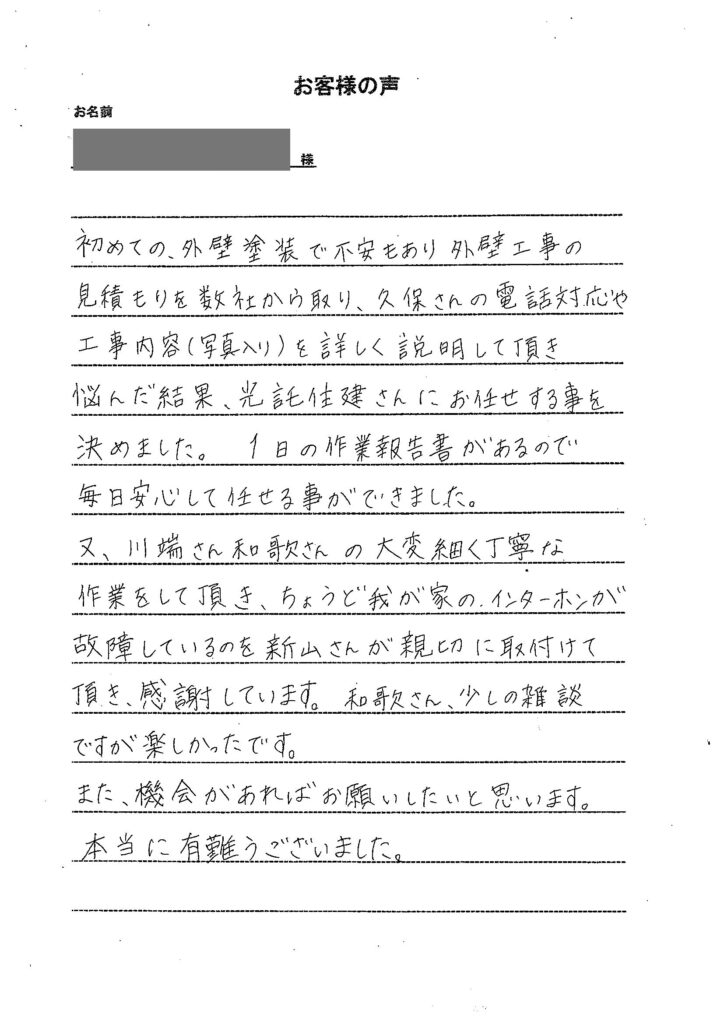 お客様の声
お名前
様
初めての、外壁塗装で不安もあり外壁工事の
見積もりを数社から取り、久保さんの電話対応や
工事内容(写真入り)を詳しく説明して頂き
悩んだ結果、光託住建さんにお任せする事を
決めました。 1日の作業報告書があるので
毎日安心して任せる事ができました。
又、川端さん和歌さんの大変細く丁寧な
作業をして頂き、ちょうど我が家の、インターホンが
故障しているのを新山さんが親切に取付けて
頂き、感謝しています。和歌さん、少しの雑談
ですが楽しかったです。
また、機会があればお願いしたいと思います。
本当に有難うございました。